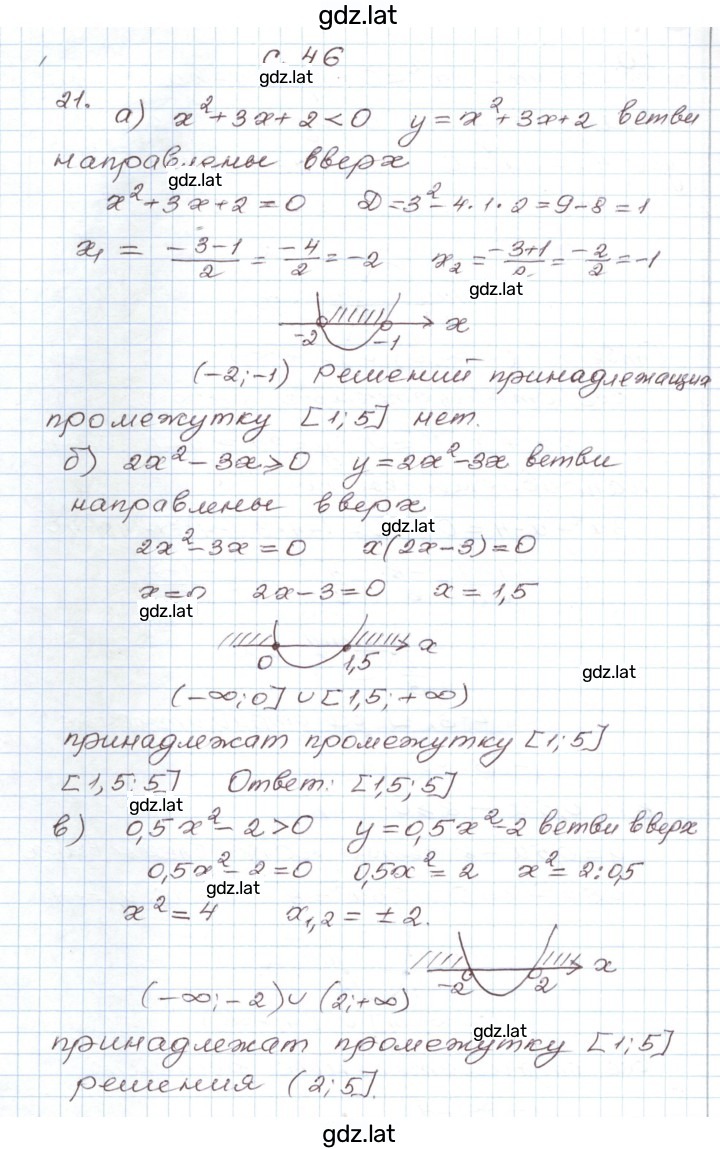 gdz.lat
с. 46
gdz.lat
21. а) x²+3x+2<0 y=x²+3x+2 ветви
направлены вверх
gdz.lat
x²+3x+2=0 D=3²-4·1·2=9-8=1
x₁ = (-3-1)/2 = -4/2 = -2 x₂ = (-3+1)/2 = -2/2 = -1
gdz.lat
-2 -1 x
(-2;-1) решений принадлежащих
промежутку [1;5] нет.
б) 2x²-3x⩾0 y=2x²-3x ветви
направлены вверх
gdz.lat
2x²-3x=0 x(2x-3)=0
x=0 2x-3=0 x=1,5
gdz.lat
0 1,5 x
gdz.lat
(-∞;0] ∪ [1,5;+∞)
принадлежат промежутку [1;5]
[1,5;5] Ответ: [1,5;5]
gdz.lat
в) 0,5x²-2>0 y=0,5x²-2 ветви вверх
0,5x²-2=0 0,5x²=2 x²=2:0,5
gdz.lat
x²=4 x₁,₂=±2.
-2 2 x
(-∞;-2)∪(2;+∞)
gdz.lat
принадлежат промежутку [1;5]
решения (2;5].
gdz.lat